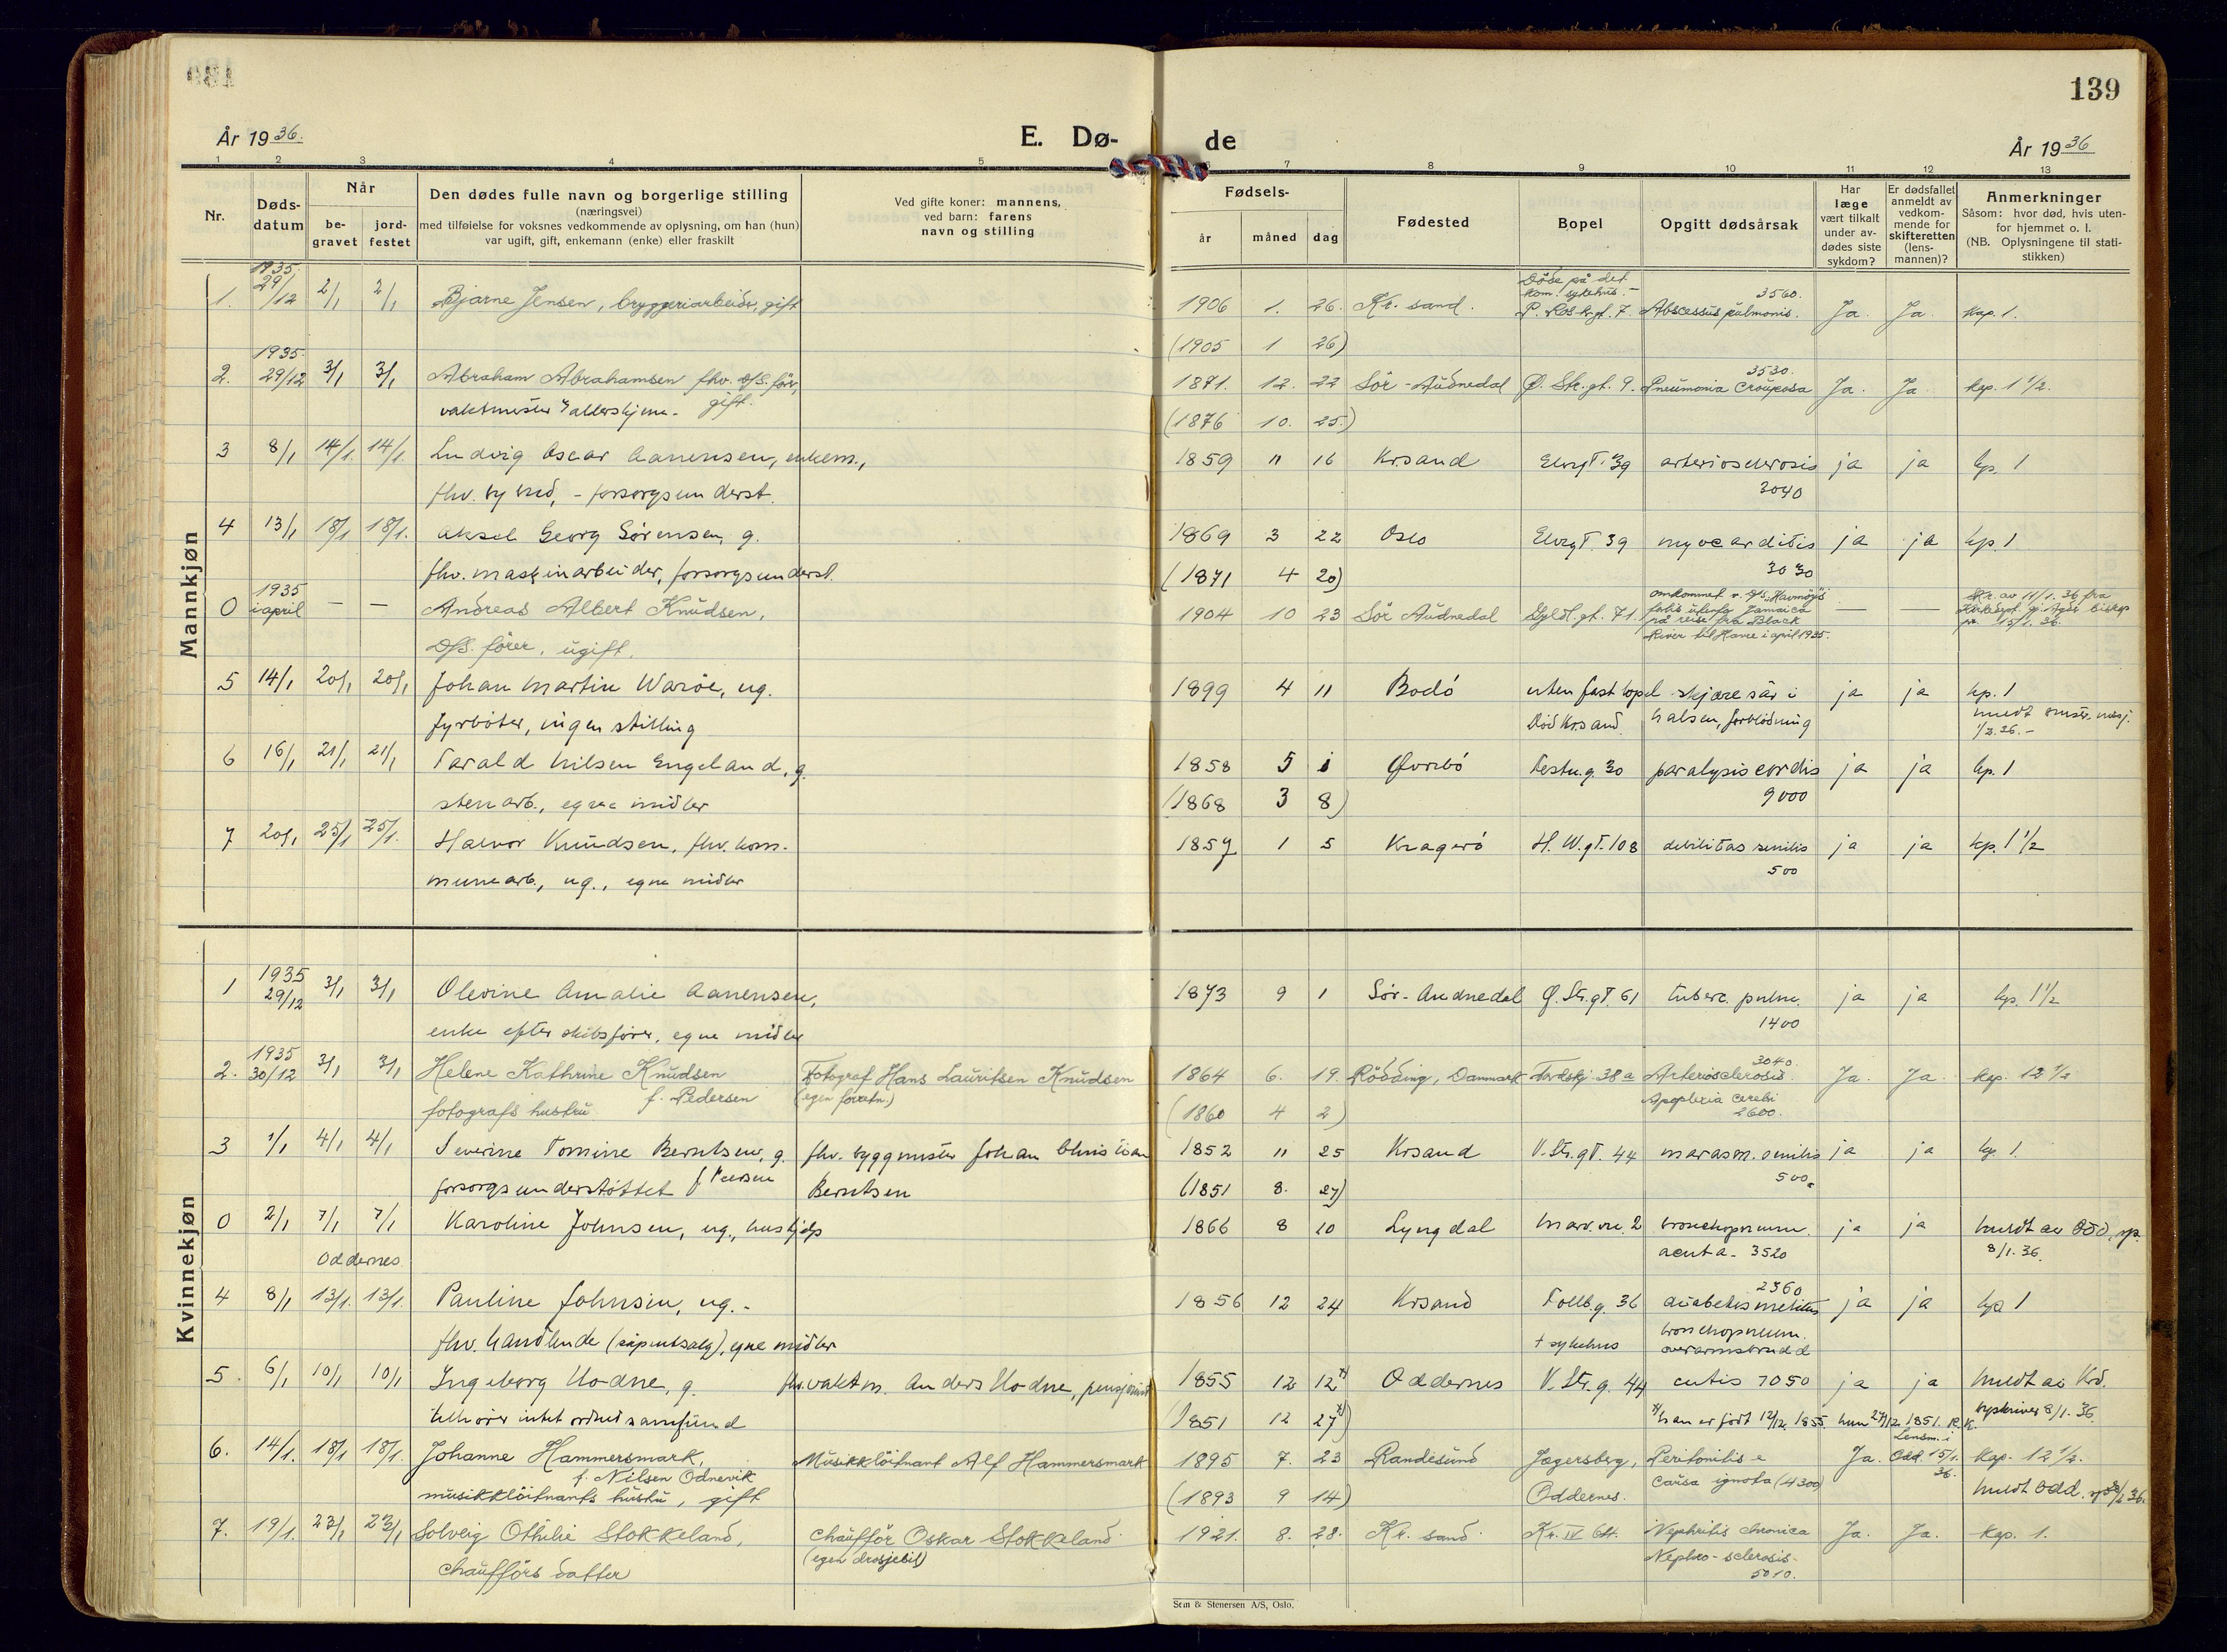 139
År 1936.
E. Dø-
de
År 1936
1 2 3 4 5 6 7 8 9 10 11 12 13
Nr.
Døds-
datum
Når
be-
gravet
jord-
festet
Den dødes fulle navn og borgerlige stilling
(næringsvei)
med tilføielse for voksnes vedkommende av oplysning, om han (hun)
var ugift, gift, enkemann (enke) eller fraskilt
Ved gifte koner: mannens,
ved barn: farens
navn og stilling
Fødsels-
år måned dag
Fødested
Bopel
Opgitt dødsårsak
Har
læge
vært tilkalt
under av-
dødes siste
sykdom?
Er dødsfallet
anmeldt av
vedkom-
mende for
skifteretten
(lens-
mannen)?
Anmerkninger
Såsom: hvor død, hvis uten-
for hjemmet o. l.
(NB. Oplysningene til stati-
stikken)
Mannkjøn
1935. Døde på det
kom. sykehus. - 3560.
1. 29/12 2/1 2/1 Bjarne Jensen, bryggeriarbeider, gift 1906 1. 26. Kr. sand. P. Kos k.gt. 7. Abscessus pulmonis. Ja. Ja. Kap. 1.
(1905 1 26)
1935. 3530.
2. 29/12 3/1 3/1 Abraham Abrahamsen fhv. D/S. förer, 1871. 12. 22 Sör-Audnedal Ø. Str. gt. 9. Pneumonia Crouposa Ja. Ja. Kap. 1 1/2.
vaktmester gift. (1876 10. 25.)
3 8/1 14/1. 14/1. Ludvig Oscar Aanensen, enkem., 1859 11 16 Krsand Elvegt. 39 arteriosclerosis ja ja kp. 1
fhv. , - forsorgsunderst. 3040
4 13/1 18/1 18/1. Aksel Georg Sørensen, g. 1869 3 22 Oslo Elvegt. 39 myocarditis ja ja kp. 1
fhv. maskinarbeider, forsorgsunderst. (1871 4 20) 3030
1935 omkommet v. D/S. "Havmöy's"
0 i april — — Andreas Albert Knudsen, 1904 10 23 Sör Audnedal Gyld. gt. 71. forlis utenfor Jamaica — — Skr. av 11/1. 36 fra
på reise fra Black Kirkedept. gj. Agder biskop
D/S. förer, ugift. River til Havre i april 1935. pr. 15/1. 36.
5 14/1 20/1 20/1 Johan Martin Waröe, ug. 1899 4 11 Bodö uten fast bopel skjæresår i ja ja kp. 1
fyrböter, ingen stilling Död Krsand. halsen, forblödning
1/2. 36. -
6 16/1 21/1 21/1 Tarald Nilsen Engeland, g. 1858 5 1 Øvrebö Festn.g. 30 paralysis cordis ja ja kp. 1
stenarb., egne midler (1868 3 8) 9000
7 20/1 25/1 25/1. Halvor Knudsen, fhv. kom- 1857 1 5 Kragerö H. W. gt. 108 debilitas senilis ja ja kp. 1 1/2
munearb., ug., egne midler 500
Kvinnekjøn
1935
1 29/12 3/1 3/1 Olevine Amalie Aanensen, 1873 9 1 Sör-Audnedal Ø. Str.gt. 61 tuberc. pulm. ja ja kp. 1 1/2
enke efter skibsförer, egne midler 1400
1935 3040
2. 30/12 3/1 3/1 Helene Kathrine Knudsen Fotograf Hans Lauritsen Knudsen 1864 6. 19. Rödding, Danmark Tordskj. 38a Arteriosclerosis. Ja. Ja. Kap. 12 1/2
f. Pedersen (egen forretn.) Apoplexia cerebi
fotografs hustru. (1860 4 2) 2600.
3 1/1 4/1 4/1 Severine Tomine Berntsen, g. fhv. byggmester Johan Christian 1852 11 25 Krsand V. Str.gt. 44 marasm. senilis ja ja kp. 1.
forsorgsunderstöttet Berntsen (1851 8. 27) 500.
0 2/1 7/1 7/1 Karoline Johnsen, ug., hushjelp 1866 8 10 Lyngdal bronchopneum. ja ja meldt av Odd. sp.
Oddernes acuta - 3520 8/1. 36.
4 8/1 13/1. 13/1. Pauline Johnsen, ug. - 1856 12 24 Krsand Tollb.g. 36 2360 diabetes melitus ja ja kp 1
fhv. handlende (såpeutsalg), egne midler + sykehus bronchopneum.
overarmsbrudd
5. 6/1 10/1 10/1 Ingeborg Hodne, g. fhv. vaktm. Anders Hodne, pensjonist 1855 12 12 x) Oddernes V. Str. g. 44 cutis 7050 ja ja meldt av Krs.
tilhører intet ordnet samfund (1851 12 27 x)) x) han er födt 12/12. 1855. hun 27/12. 1851. R. K. byskriver 8/1. 36.
6. 14/1. 18/1 18/1. Johanne Hammersmark, Musikklöitnant Alf Hammersmark 1895 7. 23 Randesund Jægersberg, Peritonitis e Ja. Lensm. i Odd. 15/1. 36. Kap. 12 1/2.
f. Nilsen Odnevik
musikklöitnants hustru, gift (1893 9 14) Oddernes. causa ignota (4300) meldt Odd.
7. 19/1. 23/1 23/1 Solveig Othilie Stokkeland, Chaufför Oskar Stokkeland 1921. 8. 28. Kr. sand Kr. IV 64. Nephritis chronica Ja. Ja. Kap. 1.
chaufförs datter (egen drosjebil) Nephro-sclerosis
5010.
Sem & Stenersen A/S, Oslo.